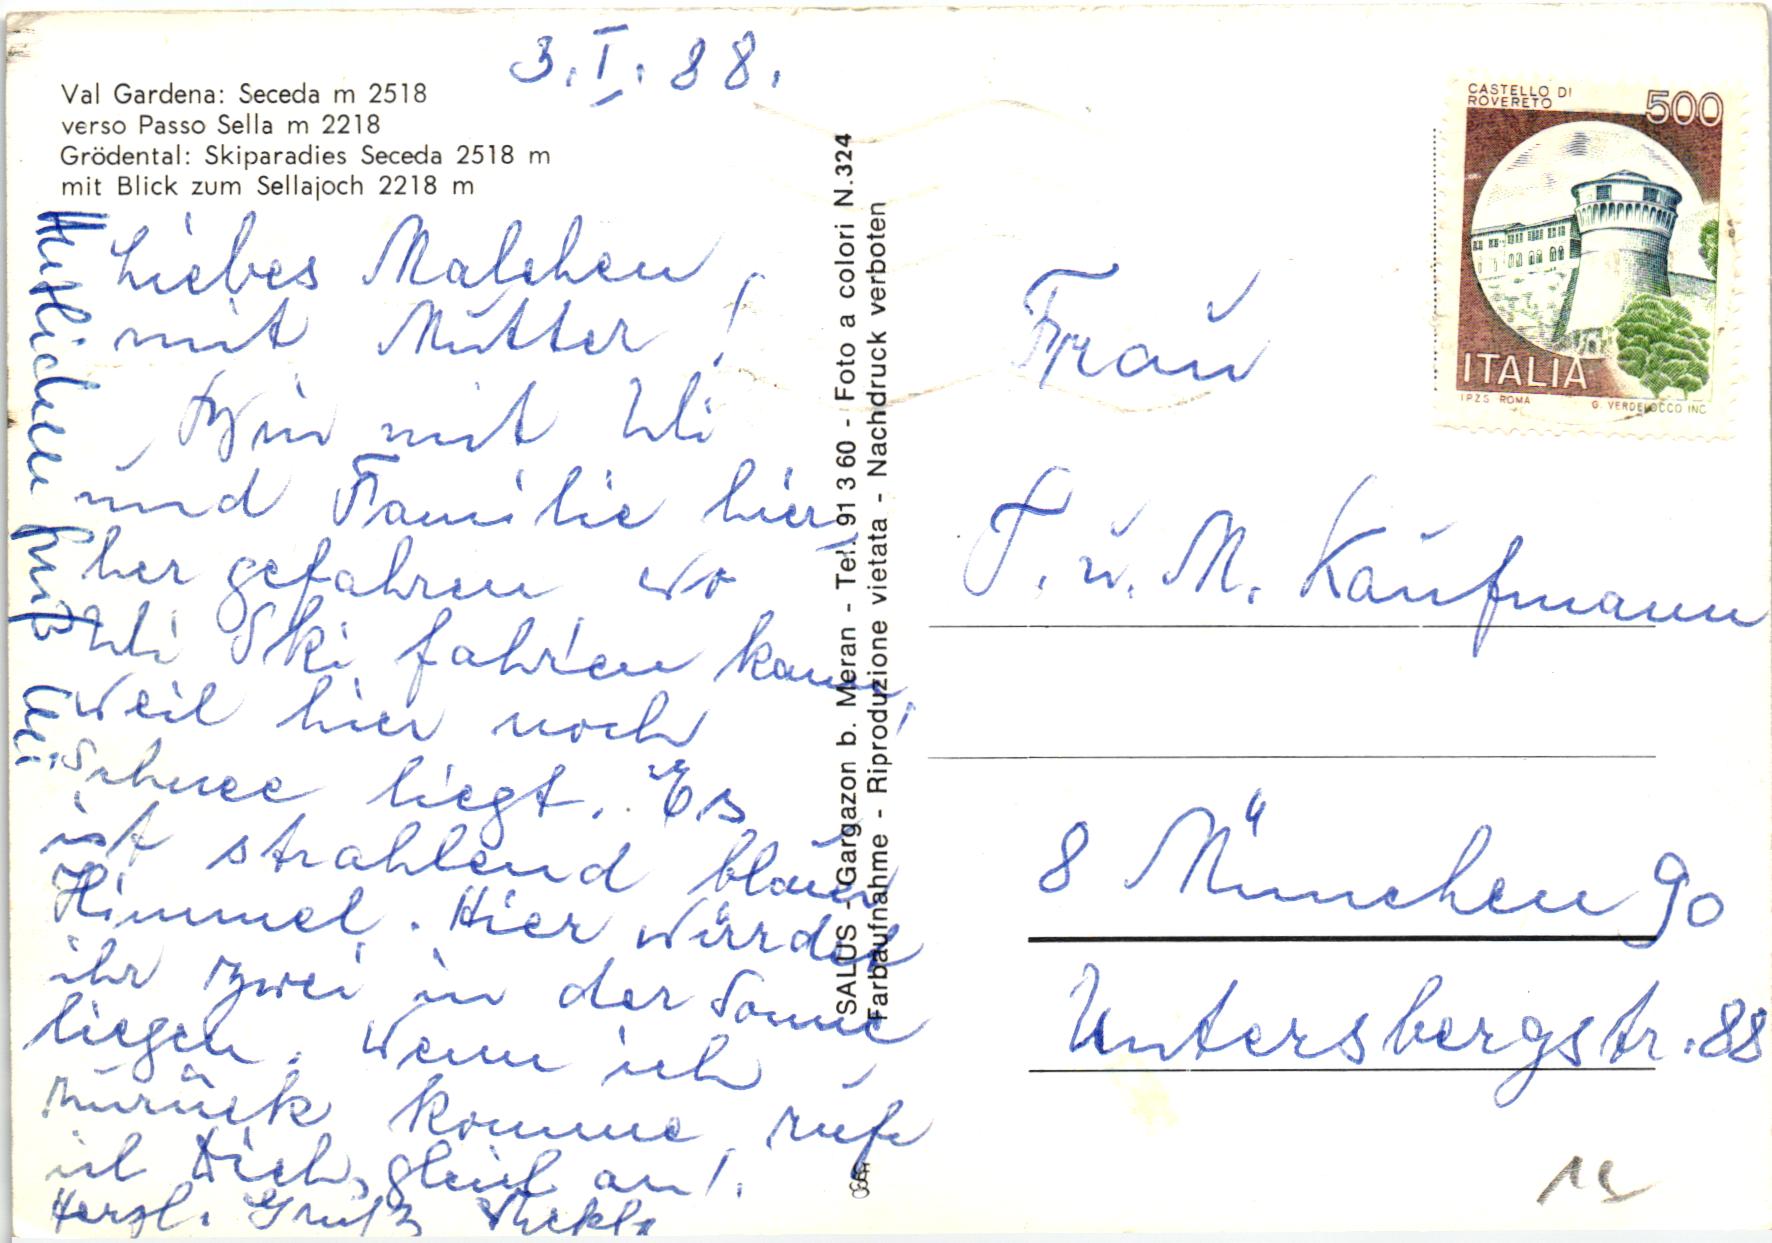 3.I.88.
Val Gardena: Seceda m 2518
verso Passo Sella m 2218
Grödental: Skiparadies Seceda 2518 m
mit Blick zum Sellajoch 2218 m
Liebes Malchen
mit Mutter!
Bin mit Uli
und Familie hier
her gefahren wo
Uli Ski fahren kann,
weil hier noch
Schnee liegt. Es
ist strahlend blauer
Himmel. Hier würdet
ihr zwei in der Sonne
liegen. Wenn ich
zurück komme, rufe
ich Dich gleich an!
Herzl. Gruß Thekla
Herzlichen Gruß Uli
SALUS - Gargazon b. Meran - Tel. 91 3 60 - Foto a colori N.324
Farbaufnahme - Riproduzione vietata - Nachdruck verboten
CASTELLO DI
ROVERETO
500
ITALIA
I.P.Z.S. ROMA
G. VERDELOCCO INC.
Frau
T. u. M. Kaufmann
8 München 90
Untersbergstr. 88